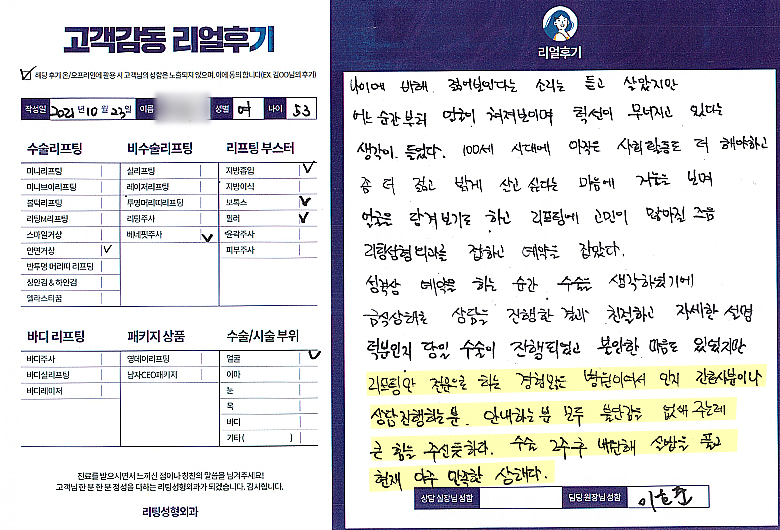 고객감동 리얼후기
해당 후기 온/오프라인에 활용 시 고객님의 성함은 노출되지 않으며, 이에 동의 합니다(EX. 김OO님의 후기)
작성일 2021년 10월 23일 이름 성별 여 나이 53
수술리프팅
미니리프팅
미니브이리프팅
볼륨리프팅
리팅M리프팅
스마일거상
안면거상
반투명 머리띠 리프팅
상안검 & 하안검
엘라스티꿈
비수술리프팅
실리프팅
레이저리프팅
투명머리띠리프팅
리팅주사
베네핏주사
리프팅 부스터
지방흡입
지방이식
보톡스
필러
윤곽주사
피부주사
바디 리프팅
바디주사
바디실리프팅
바디레이저
패키지 상품
영데이리프팅
남자CEO패키지
수술/시술 부위
얼굴
이마
눈
목
바디
기타( )
진료를 받으시면서 느끼신 점이나 칭찬의 말씀을 남겨주세요!
고객님 한 분 한 분 정성을 다하는 리팅성형외과가 되겠습니다. 감사합니다.
리팅성형외과
리얼후기
나이에 비해 젊어보인다는 소리는 듣고 살았지만
어느 순간 부터 얼굴이 쳐져보이며 턱선이 무너지고 있다는
생각이 들었다. 100세 시대에 아직은 사회활동도 더 해야하고
좀 더 젊고 밝게 살고 싶다는 마음에 거울을 보며
얼굴을 당겨보기도 하고 리프팅에 고민이 많아진 즈음
리팅성형외과를 접하고 예약을 잡았다.
성격상 예약을 하는 순간 수술을 생각하였기에
급식상해로 상담을 진행한 결과 친절하고 자세한 설명
덕분인지 당일 수술이 진행되었고 불안한 마음도 있었지만
리프팅만 전문으로 하는 경험많은 병원이여서 인지 간호사분이나
상담진행하는분, 안내하는분 모두 불안감을 없애 주는데
큰 힘을 주신듯하다. 수술 2주후 내원해 실밥을 풀고
현재 아주 만족한 상태다.
상담 실장님 성함 담당 원장님 성함